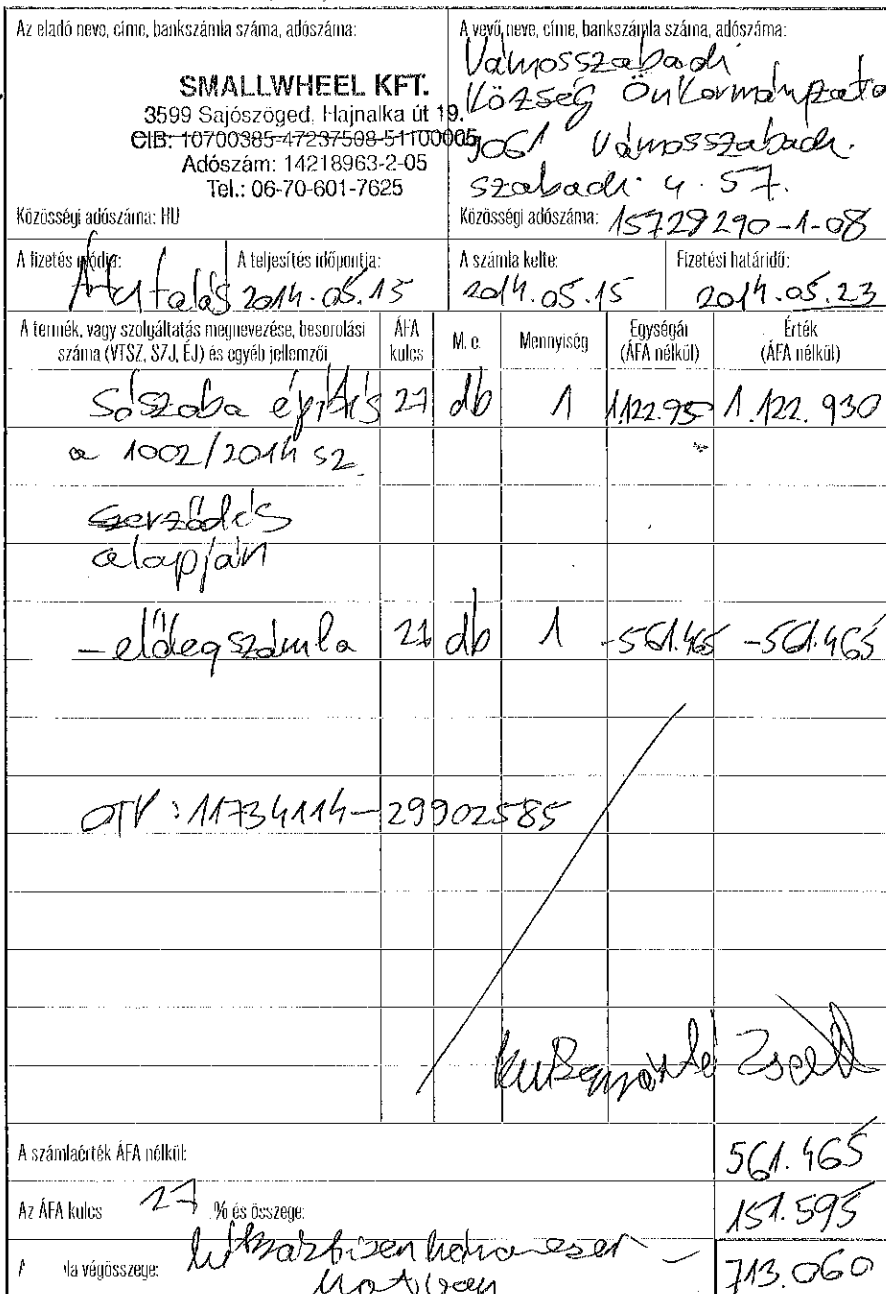 Az eladó neve, címe, bankszámla száma, adószáma:
SMALLWHEEL KFT.
3599 Sajószöged, Hajnalka út 19.
CIB: 10700385-47237508-51100005
Adószám: 14218963-2-05
Tel.: 06-70-601-7625
Közösségi adószáma: HU
A vevő neve, címe, bankszámla száma, adószáma:
Vámosszabadi
Község Önkormányzata
9061 Vámosszabadi
szabadi u. 57.
Közösségi adószáma: 15729290-1-08
A fizetés módja: Átutalás
A teljesítés időpontja: 2014.05.15
A számla kelte: 2014.05.15
Fizetési határidő: 2014.05.23
A termék, vagy szolgáltatás megnevezése, besorolási száma (VTSZ, SZJ, ÉJ) és egyéb jellemzői
ÁFA kulcs
M. e.
Mennyiség
Egységár (ÁFA nélkül)
Érték (ÁFA nélkül)
Sószoba építés 27 db 1 1.122.930
a 1002/2014 sz.
szerződés
alapján
- előlegszámla 27 db 1 -561.465 -561.465
OTP: 11734114-29902585
Zsolt
A számlaérték ÁFA nélkül: 561.465
Az ÁFA kulcs 27 % és összege: 151.595
la végösszege: 713.060
hatvan